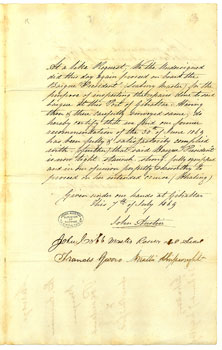 At a like Request, We the Undersigned
did this day again proceed on board the
Brigantine "President" Seabury Master, for the
purpose of inspecting the repairs done to said
at this Port of Gibraltar; Having
then & there carefully surveyed same; do
hereby certify that we find our former
recommendation of the 30th June 1869
has been fully & satisfactorily complied
with; further, that said "President"
is now tight staunch strong, fully competent
and in our opinion perfectly seaworthy to
proceed on her intended cruise, (Whaling)
Given under our hands at Gibraltar
this 7th of July 1869
John Austin
Master
Francis Master Shipwright